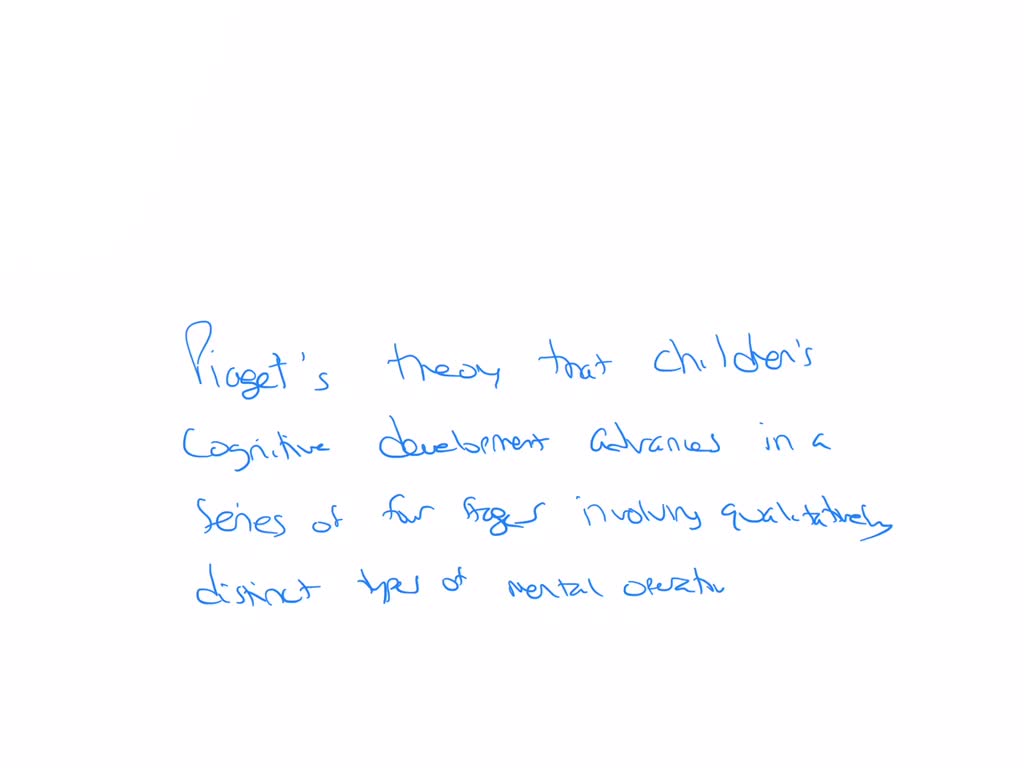 Piaget's theory that children's
Cognitive development advances in a
Series of four stages involving qualitatively
distinct types of mental operation